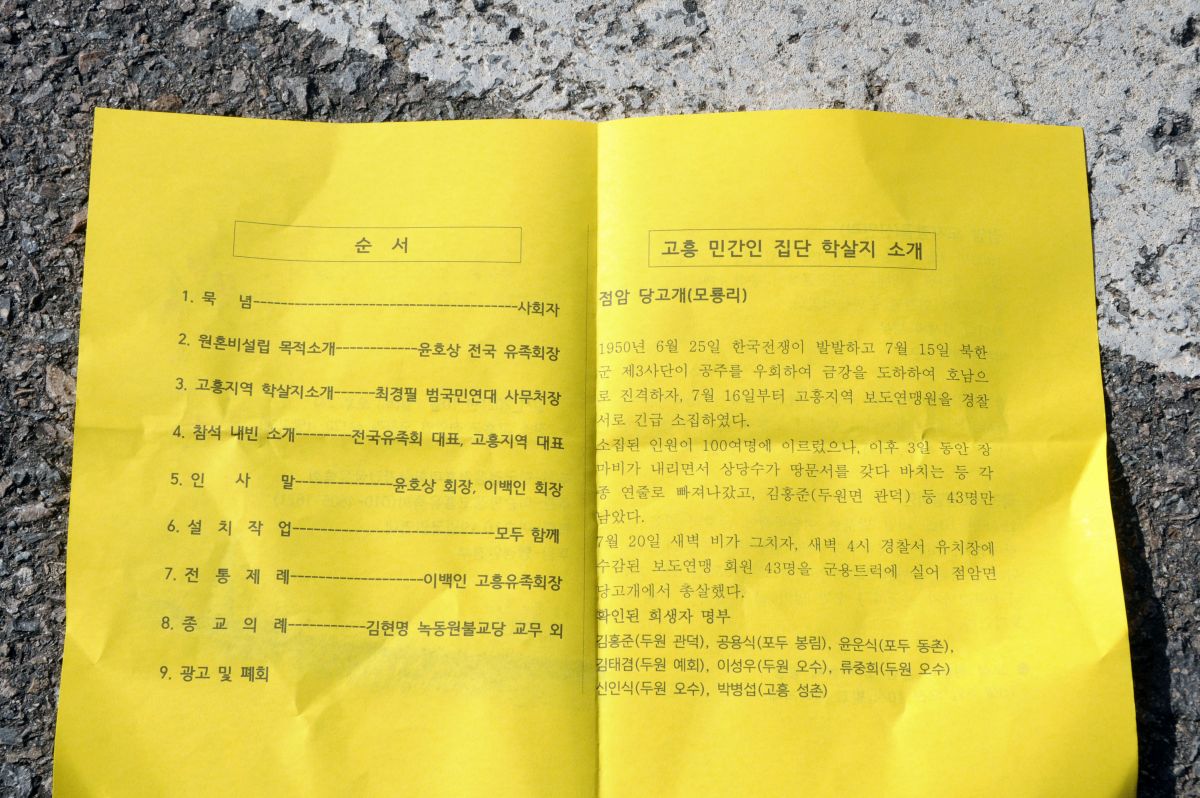 순 서
1. 묵 념--------------------------------------사회자
2. 원혼비설립 목적소개------------윤호상 전국 유족회장
3. 고흥지역 학살지소개------최경필 범국민연대 사무처장
4. 참석 내빈 소개--------전국유족회 대표, 고흥지역 대표
5. 인 사 말--------------윤호상 회장, 이백인 회장
6. 설 치 작 업-----------------------------모두 함께
7. 전 통 제 례-------------------이백인 고흥유족회장
8. 종 교 의 례-----------김현명 녹동원불교당 교무 외
9. 광고 및 폐회
고흥 민간인 집단 학살지 소개
점암 당고개(모룡리)
1950년 6월 25일 한국전쟁이 발발하고 7월 15일 북한
군 제3사단이 공주를 우회하여 금강을 도하하여 호남으
로 진격하자, 7월 16일부터 고흥지역 보도연맹원을 경찰
서로 긴급 소집하였다.
소집된 인원이 100여명에 이르렀으나, 이후 3일 동안 장
마비가 내리면서 상당수가 땅문서를 갖다 바치는 등 각
종 연줄로 빠져나갔고, 김홍준(두원면 관덕) 등 43명만
남았다.
7월 20일 새벽 비가 그치자, 새벽 4시 경찰서 유치장에
수감된 보도연맹 회원 43명을 군용트럭에 실어 점암면
당고개에서 총살했다.
확인된 희생자 명부
김홍준(두원 관덕), 공용식(포두 봉림), 윤운식(포두 동촌),
김태겸(두원 예회), 이성우(두원 오수), 류중희(두원 오수)
신인식(두원 오수), 박병섭(고흥 성촌)